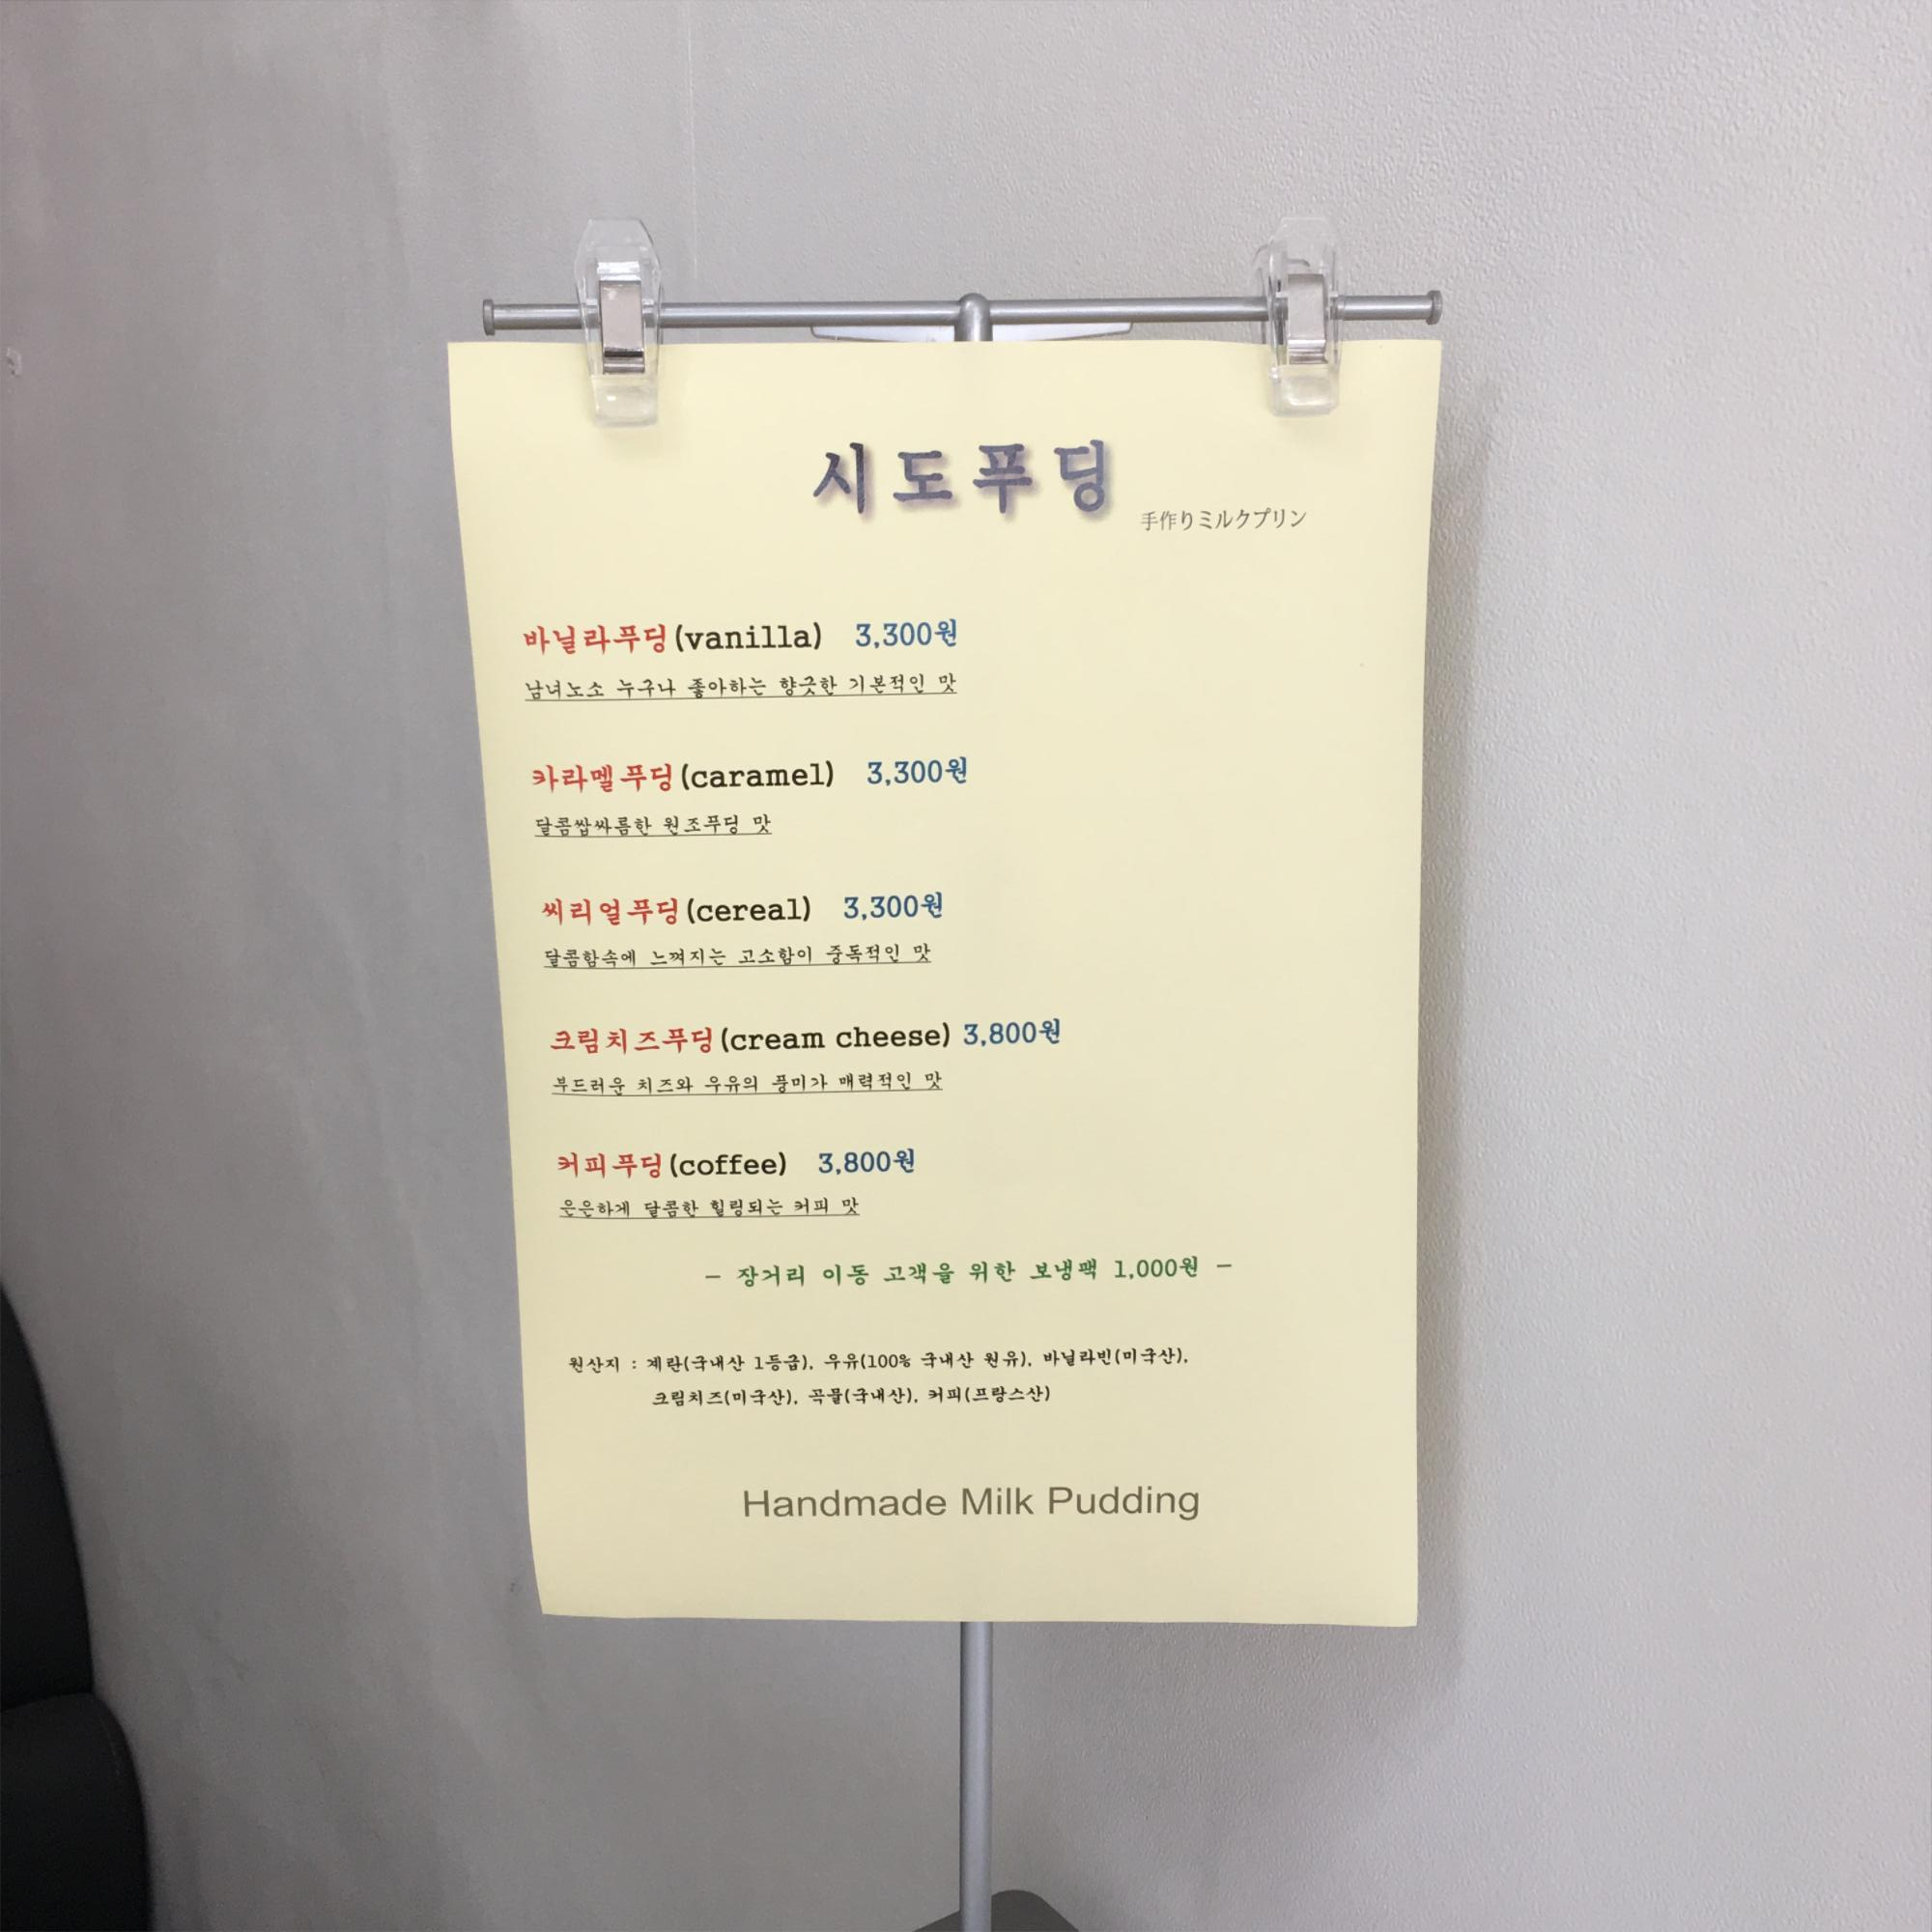 시도푸딩
手作りミルクプリン
바닐라푸딩(vanilla) 3,300원
남녀노소 누구나 좋아하는 향긋한 기본적인 맛
카라멜푸딩(caramel) 3,300원
달콤쌉싸름한 원조푸딩 맛
씨리얼푸딩(cereal) 3,300원
달콤함속에 느껴지는 고소함이 중독적인 맛
크림치즈푸딩(cream cheese) 3,800원
부드러운 치즈와 우유의 풍미가 매력적인 맛
커피푸딩(coffee) 3,800원
은은하게 달콤한 힐링되는 커피 맛
- 장거리 이동 고객을 위한 보냉팩 1,000원 -
원산지 : 계란(국내산 1등급), 우유(100% 국내산 원유), 바닐라빈(미국산),
크림치즈(미국산), 곡물(국내산), 커피(프랑스산)
Handmade Milk Pudding